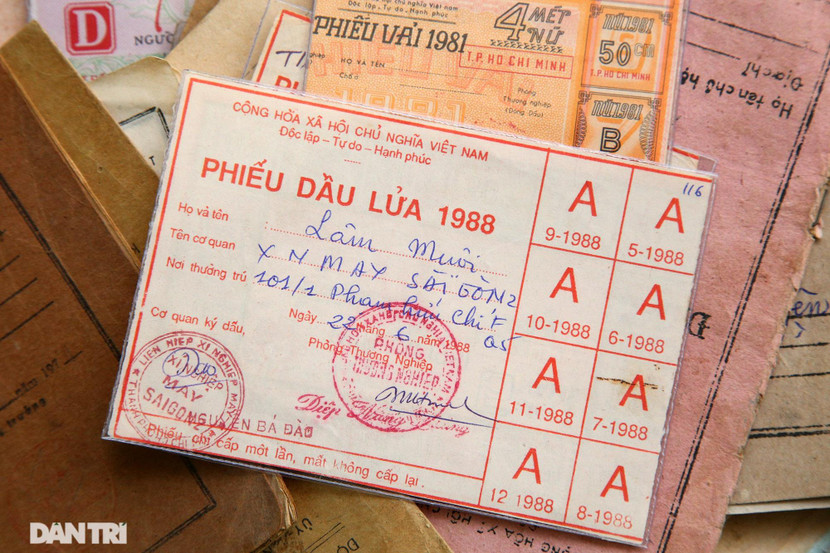 D
NGƯỜ
PHIẾU VẢI 1981
4 MÉT
NỮ
T.P HỒ CHÍ MINH
HỌ VÀ TÊN
Phòng
Thương nghiệp
NỮ 1981
50 cm
T.P HỒ CHÍ MINH
NỮ 1981
B
Họ tên chủ hộ
Địa chỉ
CỘNG HÒA XÃ HỘI CHỦ NGHĨA VIỆT NAM
Độc lập - Tự do - Hạnh phúc
PHIẾU DẦU LỬA 1988
Họ và tên Lâm Muôi
Tên cơ quan X N MAY SÀI GÒN 2
Nơi thường trú 101/1 Phạm Hữu Chí F
Q5
Ngày 22 tháng 6 năm 1988
Cơ quan ký dấu,
Phòng Thương Nghiệp
LIÊN HIỆP XÍ NGHIỆP MAY
XÍ NGHIỆP
MAY
SAIGON
NGUYỄN BÁ ĐẢU
PHÒNG
THƯƠNG NGHIỆP
Phiếu chỉ cấp một lần, mất không cấp lại.
116
A
9-1988
A
5-1988
A
10-1988
A
6-1988
A
11-1988
A
7-1988
A
12 1988
A
8-1988
DÂN TRÍ